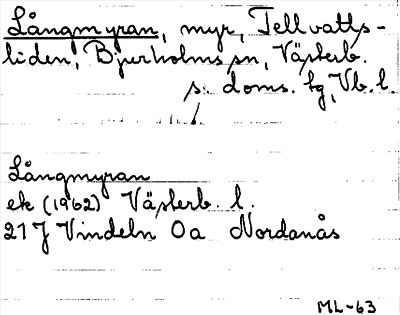 Långmyran, myr, Tellvatts-
liden, Bjurholms sn, Västerb.
s. doms. hg, Vb. l.
Långmyran
ek (1962) Västerb. l.
21 J Vindeln 0a Nordanås
ML-63